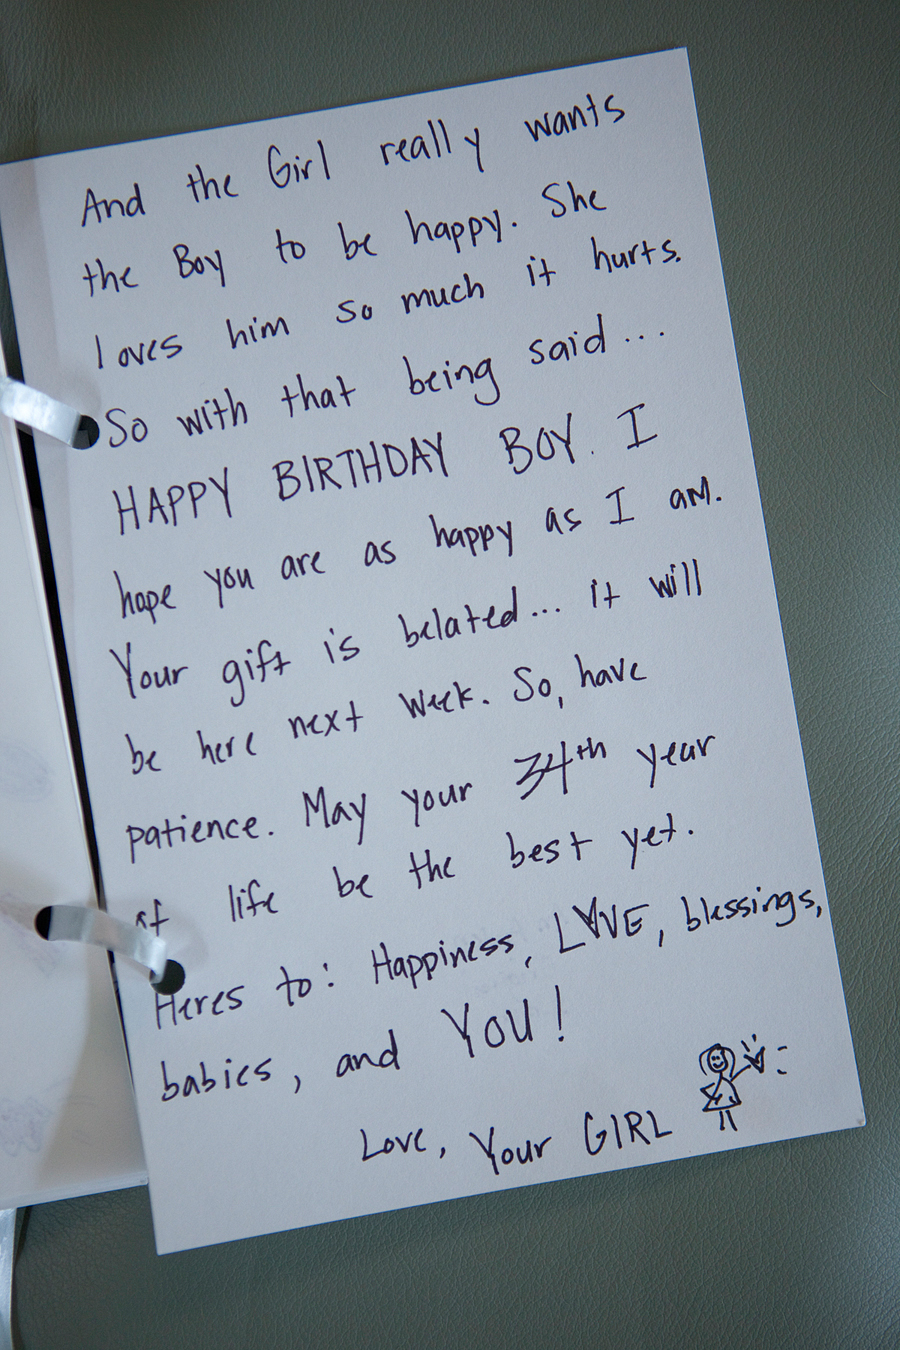 And the Girl really wants
the Boy to be happy. She
loves him so much it hurts.
So with that being said...
HAPPY BIRTHDAY BOY. I
hope you are as happy as I am.
Your gift is belated... it will
be here next week. So, have
patience. May your 34th year
of life be the best yet.
Heres to: Happiness, LOVE, blessings,
babies, and YOU!
Love, Your GIRL